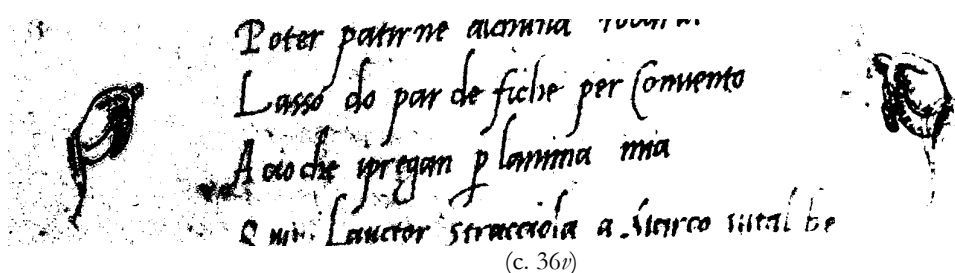 Poter patirne alchuna
Lasso do par de fiche per Convento
A cio che ipregan p lanima mia
Lauctor stracciola a Marco
(c. 36v)